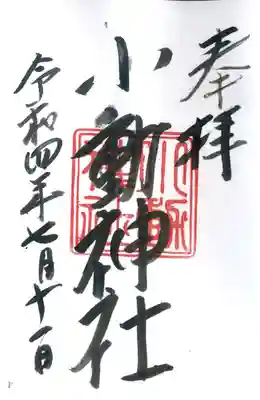 奉拝
小動神社
令和四年七月十一日